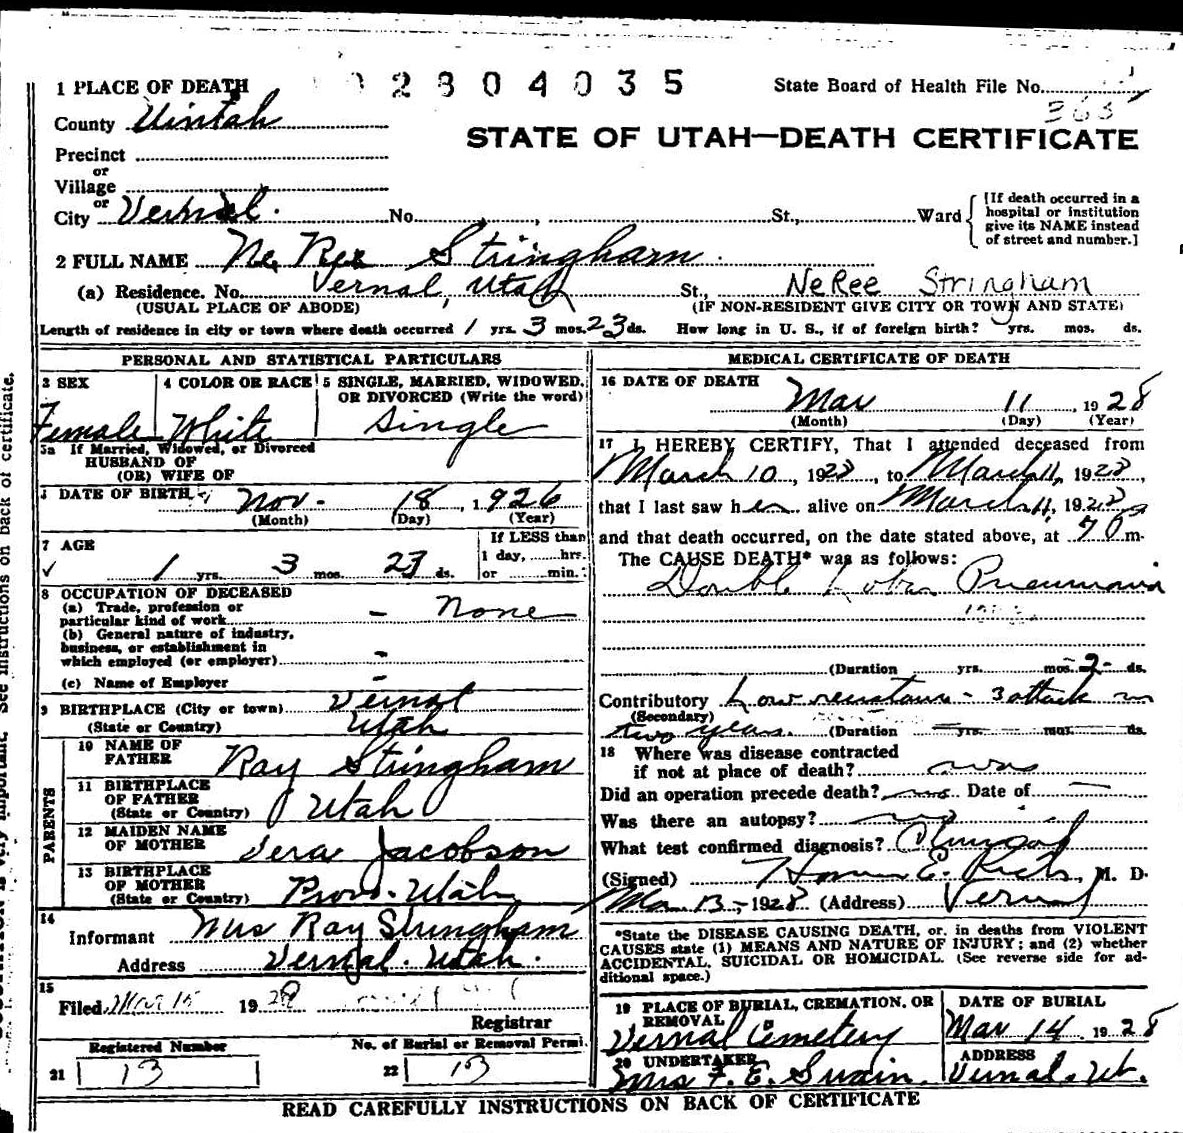 1 PLACE OF DEATH
2804035
State Board of Health File No.
365
County Uintah
STATE OF UTAH—DEATH CERTIFICATE
Precinct
or
Village
or
City Vernal. No. , St., Ward
[If death occurred in a hospital or institution give its NAME instead of street and number.]
2 FULL NAME Ne Ree Stringham.
(a) Residence. No. Vernal, Utah St., NeRee Stringham
(USUAL PLACE OF ABODE) (IF NON-RESIDENT GIVE CITY OR TOWN AND STATE)
Length of residence in city or town where death occurred 1 yrs. 3 mos. 23 ds. How long in U. S., if of foreign birth? yrs. mos. ds.
PERSONAL AND STATISTICAL PARTICULARS
3 SEX 4 COLOR OR RACE 5 SINGLE, MARRIED, WIDOWED, OR DIVORCED (Write the word)
Female White Single
5a If Married, Widowed, or Divorced
HUSBAND OF
(OR) WIFE OF
DATE OF BIRTH Nov. 18, 1926
(Month) (Day) (Year)
7 AGE
If LESS than
1 day, hrs.
or min.
1 yrs. 3 mos. 23 ds.
8 OCCUPATION OF DECEASED
(a) Trade, profession or
particular kind of work – none
(b) General nature of industry,
business, or establishment in
which employed (or employer) –
(c) Name of Employer –
9 BIRTHPLACE (City or town) Vernal
(State or Country) Utah
PARENTS
10 NAME OF FATHER Ray Stringham
11 BIRTHPLACE OF FATHER
(State or Country) Utah
12 MAIDEN NAME OF MOTHER Vera Jacobson
13 BIRTHPLACE OF MOTHER
(State or Country) Provo-Utah
14
Informant Mrs Ray Stringham
Address Vernal. Utah.
15
Filed Mar 15 1928
Registrar
Registered Number No. of Burial or Removal Permi.
21 13 22 13
MEDICAL CERTIFICATE OF DEATH
16 DATE OF DEATH
Mar 11, 1928
(Month) (Day) (Year)
17 I, HEREBY CERTIFY, That I attended deceased from
March 10, 1928, to March 11, 1928,
that I last saw her alive on March 11, 1928
and that death occurred, on the date stated above, at 7 m.
The CAUSE DEATH* was as follows:
Double Lobar Pneumonia
(Duration yrs. mos. 2 ds.
Contributory Low resistance - 3 attack in
(Secondary)
two years. (Duration yrs. mos. ds.
18 Where was disease contracted
if not at place of death?
Did an operation precede death? no Date of –
Was there an autopsy? no
What test confirmed diagnosis? Clinical
(Signed) Homer E. Rich, M. D.
Mar 13, 1928 (Address) Vernal
*State the DISEASE CAUSING DEATH, or, in deaths from VIOLENT
CAUSES state (1) MEANS AND NATURE OF INJURY; and (2) whether
ACCIDENTAL, SUICIDAL OR HOMICIDAL. (See reverse side for ad-
ditional space.)
19 PLACE OF BURIAL, CREMATION, OR REMOVAL
Vernal Cemetery
DATE OF BURIAL
Mar 14 1928
20 UNDERTAKER
Mrs F. E. Swain.
ADDRESS
Vernal. Ut.
READ CAREFULLY INSTRUCTIONS ON BACK OF CERTIFICATE
See instructions on back of certificate.